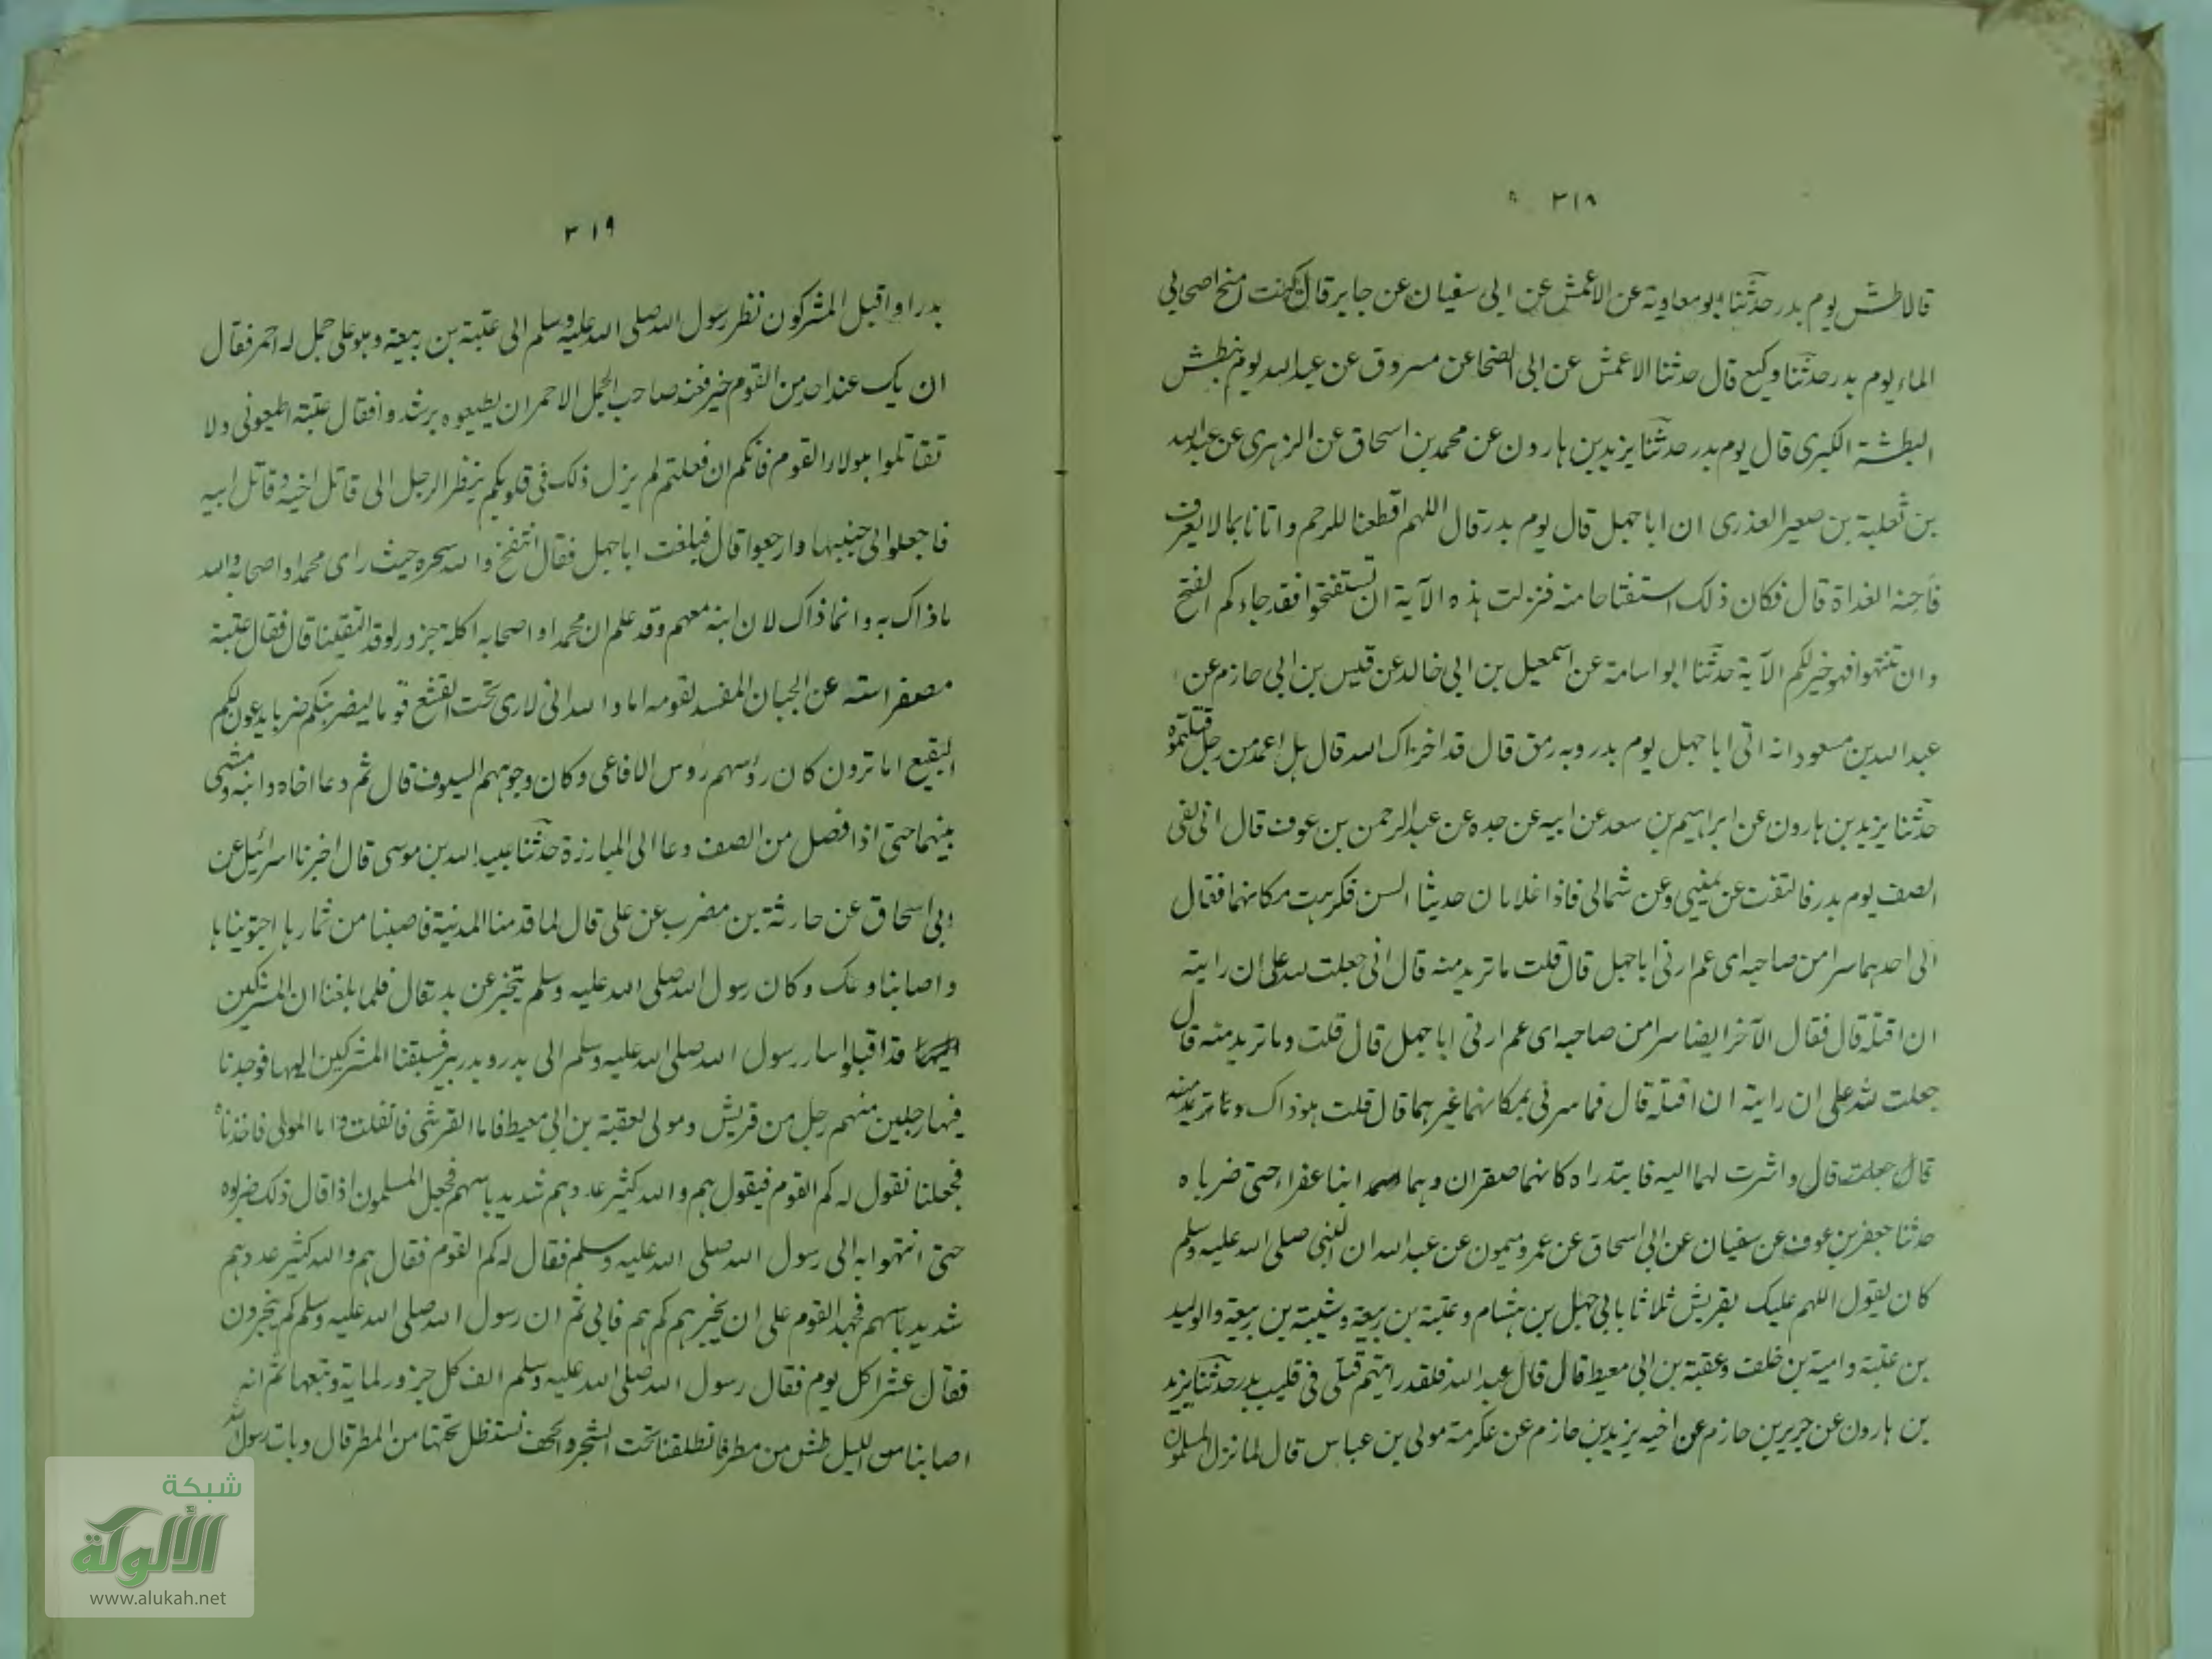 ٣١٨
قالا طش يوم بدر حدثنا ابو معاوية عن الاعمش عن ابى سفيان عن جابر قال كنت امنح اصحابى
الماء يوم بدر حدثنا وكيع قال حدثنا الاعمش عن ابى الضحا عن مسروق عن عبد الله يوم نبطش
البطشة الكبرى قال يوم بدر حدثنا يزيد بن هارون عن محمد بن اسحاق عن الزهرى عن عبد الله
بن ثعلبة بن صعير العذرى ان ابا جهل قال يوم بدر قال اللهم اقطعنا للرحم واتانا بما لا يعرف
فاحنه الغداة قال فكان ذلك استفتاحا منه فنزلت هذه الآية ان تستفتحوا فقد جاءكم الفتح
وان تنتهوا فهو خير لكم الآية حدثنا ابو اسامة عن اسمعيل بن ابى خالد عن قيس بن ابى حازم عن
عبد الله بن مسعود انه اتى ابا جهل يوم بدر وبه رمق قال قد اخزاك الله قال بل اعمد من رجل قتلتموه
حدثنا يزيد بن هارون عن ابراهيم بن سعد عن ابيه عن جده عن عبد الرحمن بن عوف قال انى لفى
الصف يوم بدر فالتفت عن يمينى وعن شمالى فاذا غلامان حديثا السن فكرهت مكانهما فقال
الى احدهما سرا من صاحبه اى عم ارنى ابا جهل قال قلت ما تريد منه قال انى جعلت لله على ان رايته
ان اقتله قال فقال الآخر ايضا سرا من صاحبه اى عم ارنى ابا جهل قال قلت وما تريد منه قال
جعلت لله على ان رايته ان اقتله قال فما سرنى بمكانهما غيرهما قال قلت هو ذاك وما تريد منه
قال جعلت قال واشرت لهما اليه فابتدراه كانهما صقران وهما ابنا عفراء حتى ضرباه
حدثنا جعفر بن عوف عن سفيان عن ابى اسحاق عن عمرو ميمون عن عبد الله ان النبى صلى الله عليه وسلم
كان يقول اللهم عليك بقريش ثلاثا بابى جهل بن هشام وعتبة بن ربيعة وشيبة بن ربيعة والوليد
بن عتبة وامية بن خلف وعقبة بن ابى معيط قال قال عبد الله فلقد رايتهم قتلى فى قليب بدر حدثنا يزيد
بن هارون عن جرير بن حازم عن اخيه يزيد بن حازم عن عكرمة مولى بن عباس قال لما نزل المسلمون
٣١٩
بدرا واقبل المشركون نظر رسول الله صلى الله عليه وسلم الى عتبة بن ربيعة وهو على جمل له احمر فقال
ان يك عند احد من القوم خير فعند صاحب الجمل الاحمر ان يطيعوه يرشدوا فقال عتبة اطيعونى ولا
تقاتلوا هولاء القوم فانكم ان فعلتم لم يزل ذلك فى قلوبكم ينظر الرجل الى قاتل اخيه وقاتل ابيه
فاجعلوا لى جنبها وارجعوا قال فبلغت ابا جهل فقال انتفخ والله سحره حيث راى محمدا واصحابه والله
ما ذاك به وانما ذاك لان ابنه معهم وقد علم ان محمدا واصحابه اكلة جزور لو قد التقينا قال فقال عتبة
مصفر استه عن الجبان المفسد لقومه اما والله انى لارى تحت القشع قوما ليضربنكم ضربا يدعون لكم
البقيع اما ترون كان رؤسهم روس الافاعى وكان وجوههم السيوف قال ثم دعا اخاه وابنه ومشى
بينهما حتى اذا فصل من الصف دعا الى المبارزة حدثنا عبيد الله بن موسى قال اخبرنا اسرائيل عن
ابى اسحاق عن حارثة بن مضرب عن على قال لما قدمنا المدنية فاصبنا من ثمارها اجتويناها
واصابنا وعك وكان رسول الله صلى الله عليه وسلم يتخبر عن بدر قال فلما بلغنا ان المشركين
قد اقبلوا سار رسول الله صلى الله عليه وسلم الى بدر وبدر بير فسبقنا المشركين اليها فوجدنا
فيها رجلين منهم رجل من قريش ومولى لعقبة بن ابى معيط فاما القرشى فانفلت واما المولى فاخذناه
فجعلنا نقول له كم القوم فيقول هم والله كثير عددهم شديد باسهم فجعل المسلمون اذا قال ذلك ضربوه
حتى انتهوا به الى رسول الله صلى الله عليه وسلم فقال له كم القوم فقال هم والله كثير عددهم
شديد باسهم فجهد القوم على ان يخبرهم كم هم فابى ثم ان رسول الله صلى الله عليه وسلم كم ينحرون
فقال عشرا كل يوم فقال رسول الله صلى الله عليه وسلم الف كل جزور لماية وتبعها ثم انه
اصابنا من الليل طش من مطر فانطلقنا تحت الشجر والحجف نستظل تحتها من المطر قال وبات رسول الله
شبكة
الألوكة
www.alukah.net